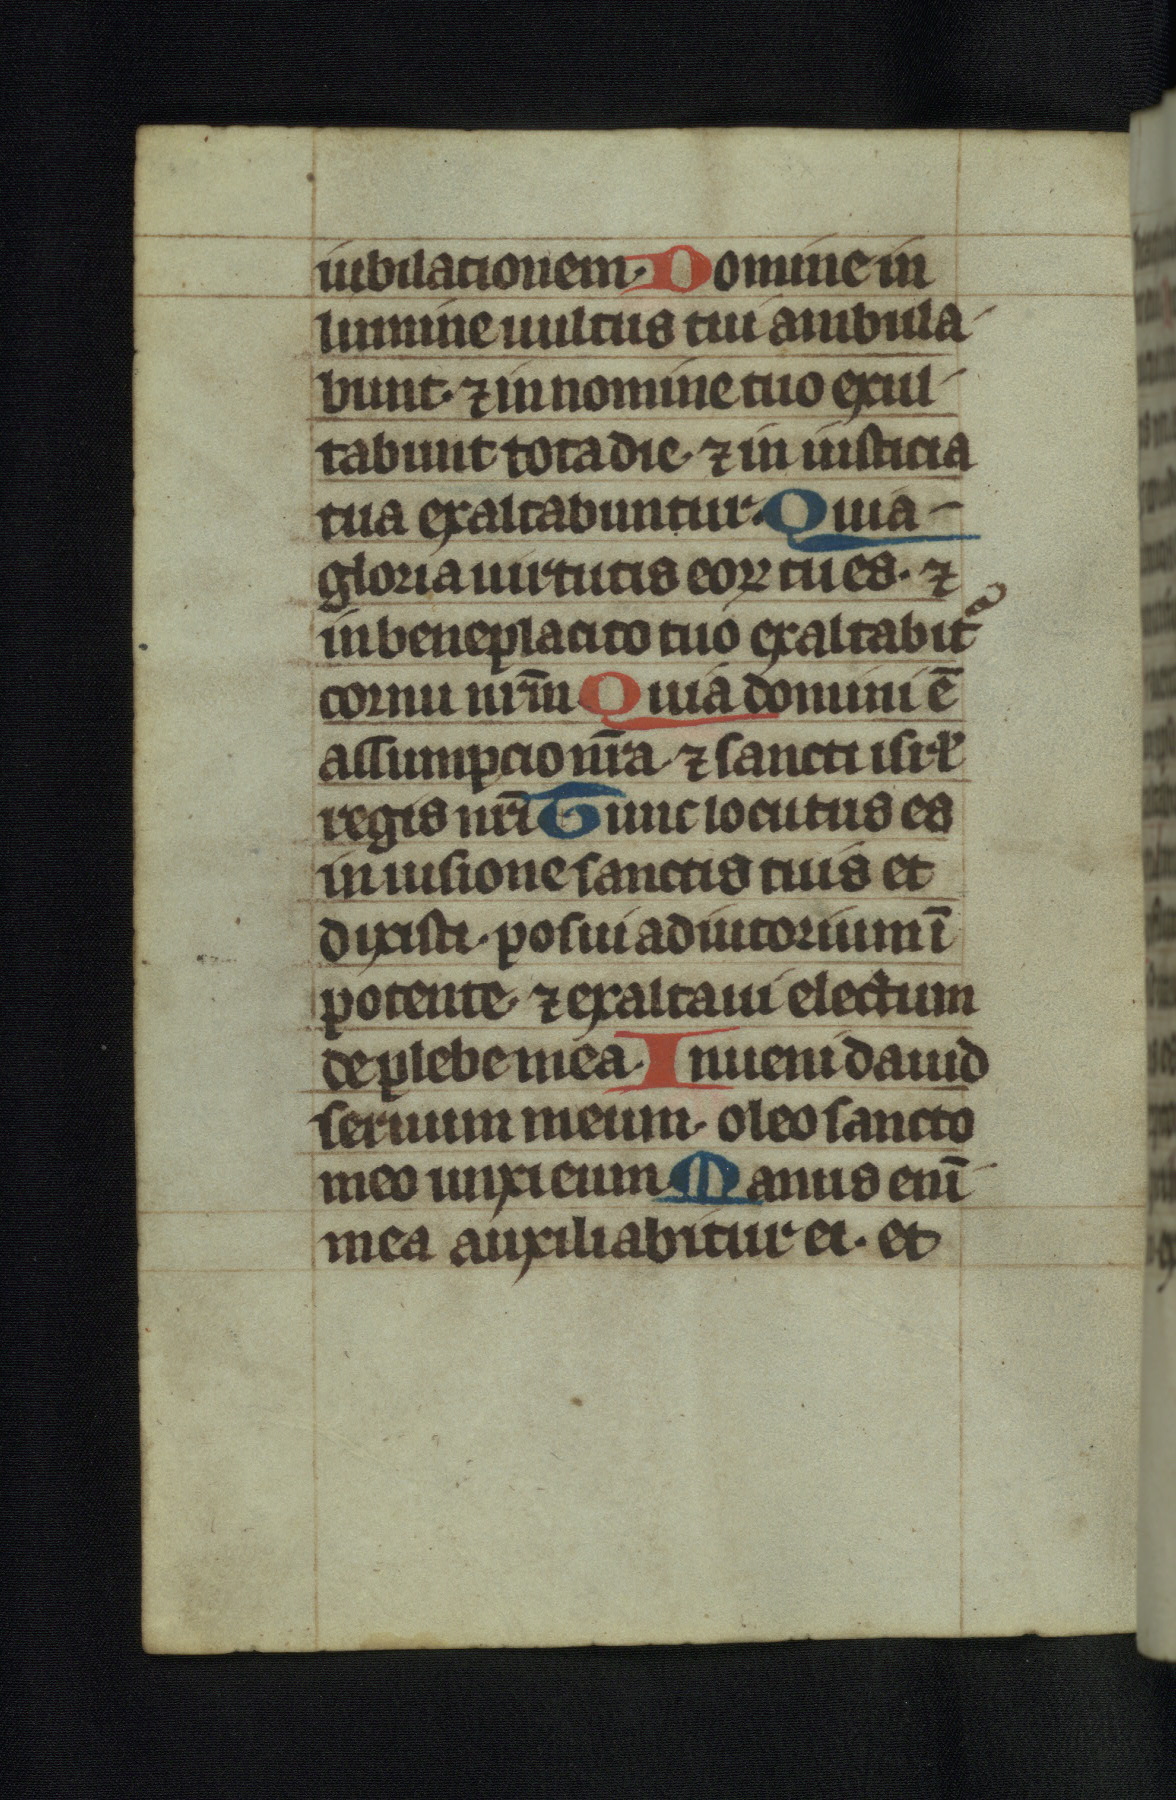 iubilacionem. Domine in
lumine uultus tui ambula-
bunt. ⁊ in nomine tuo exul-
tabunt tota die. ⁊ in iusticia
tua exaltabuntur. Quia -
gloria uirtutis eoꝝ tu es. ⁊
in beneplacito tuo exaltabit᷑
cornu nr̄m Quia domini ē
assumpcio nr̄a. ⁊ sancti isrł
regis nr̄i Tunc locutus es
in uisione sanctis tuis et
dixisti. posui adiutorium ī
potente. ⁊ exaltaui electum
de plebe mea. Inueni dauid
seruum meum. oleo sancto
meo unxi eum Manus enī-
mea auxiliabitur ei. et